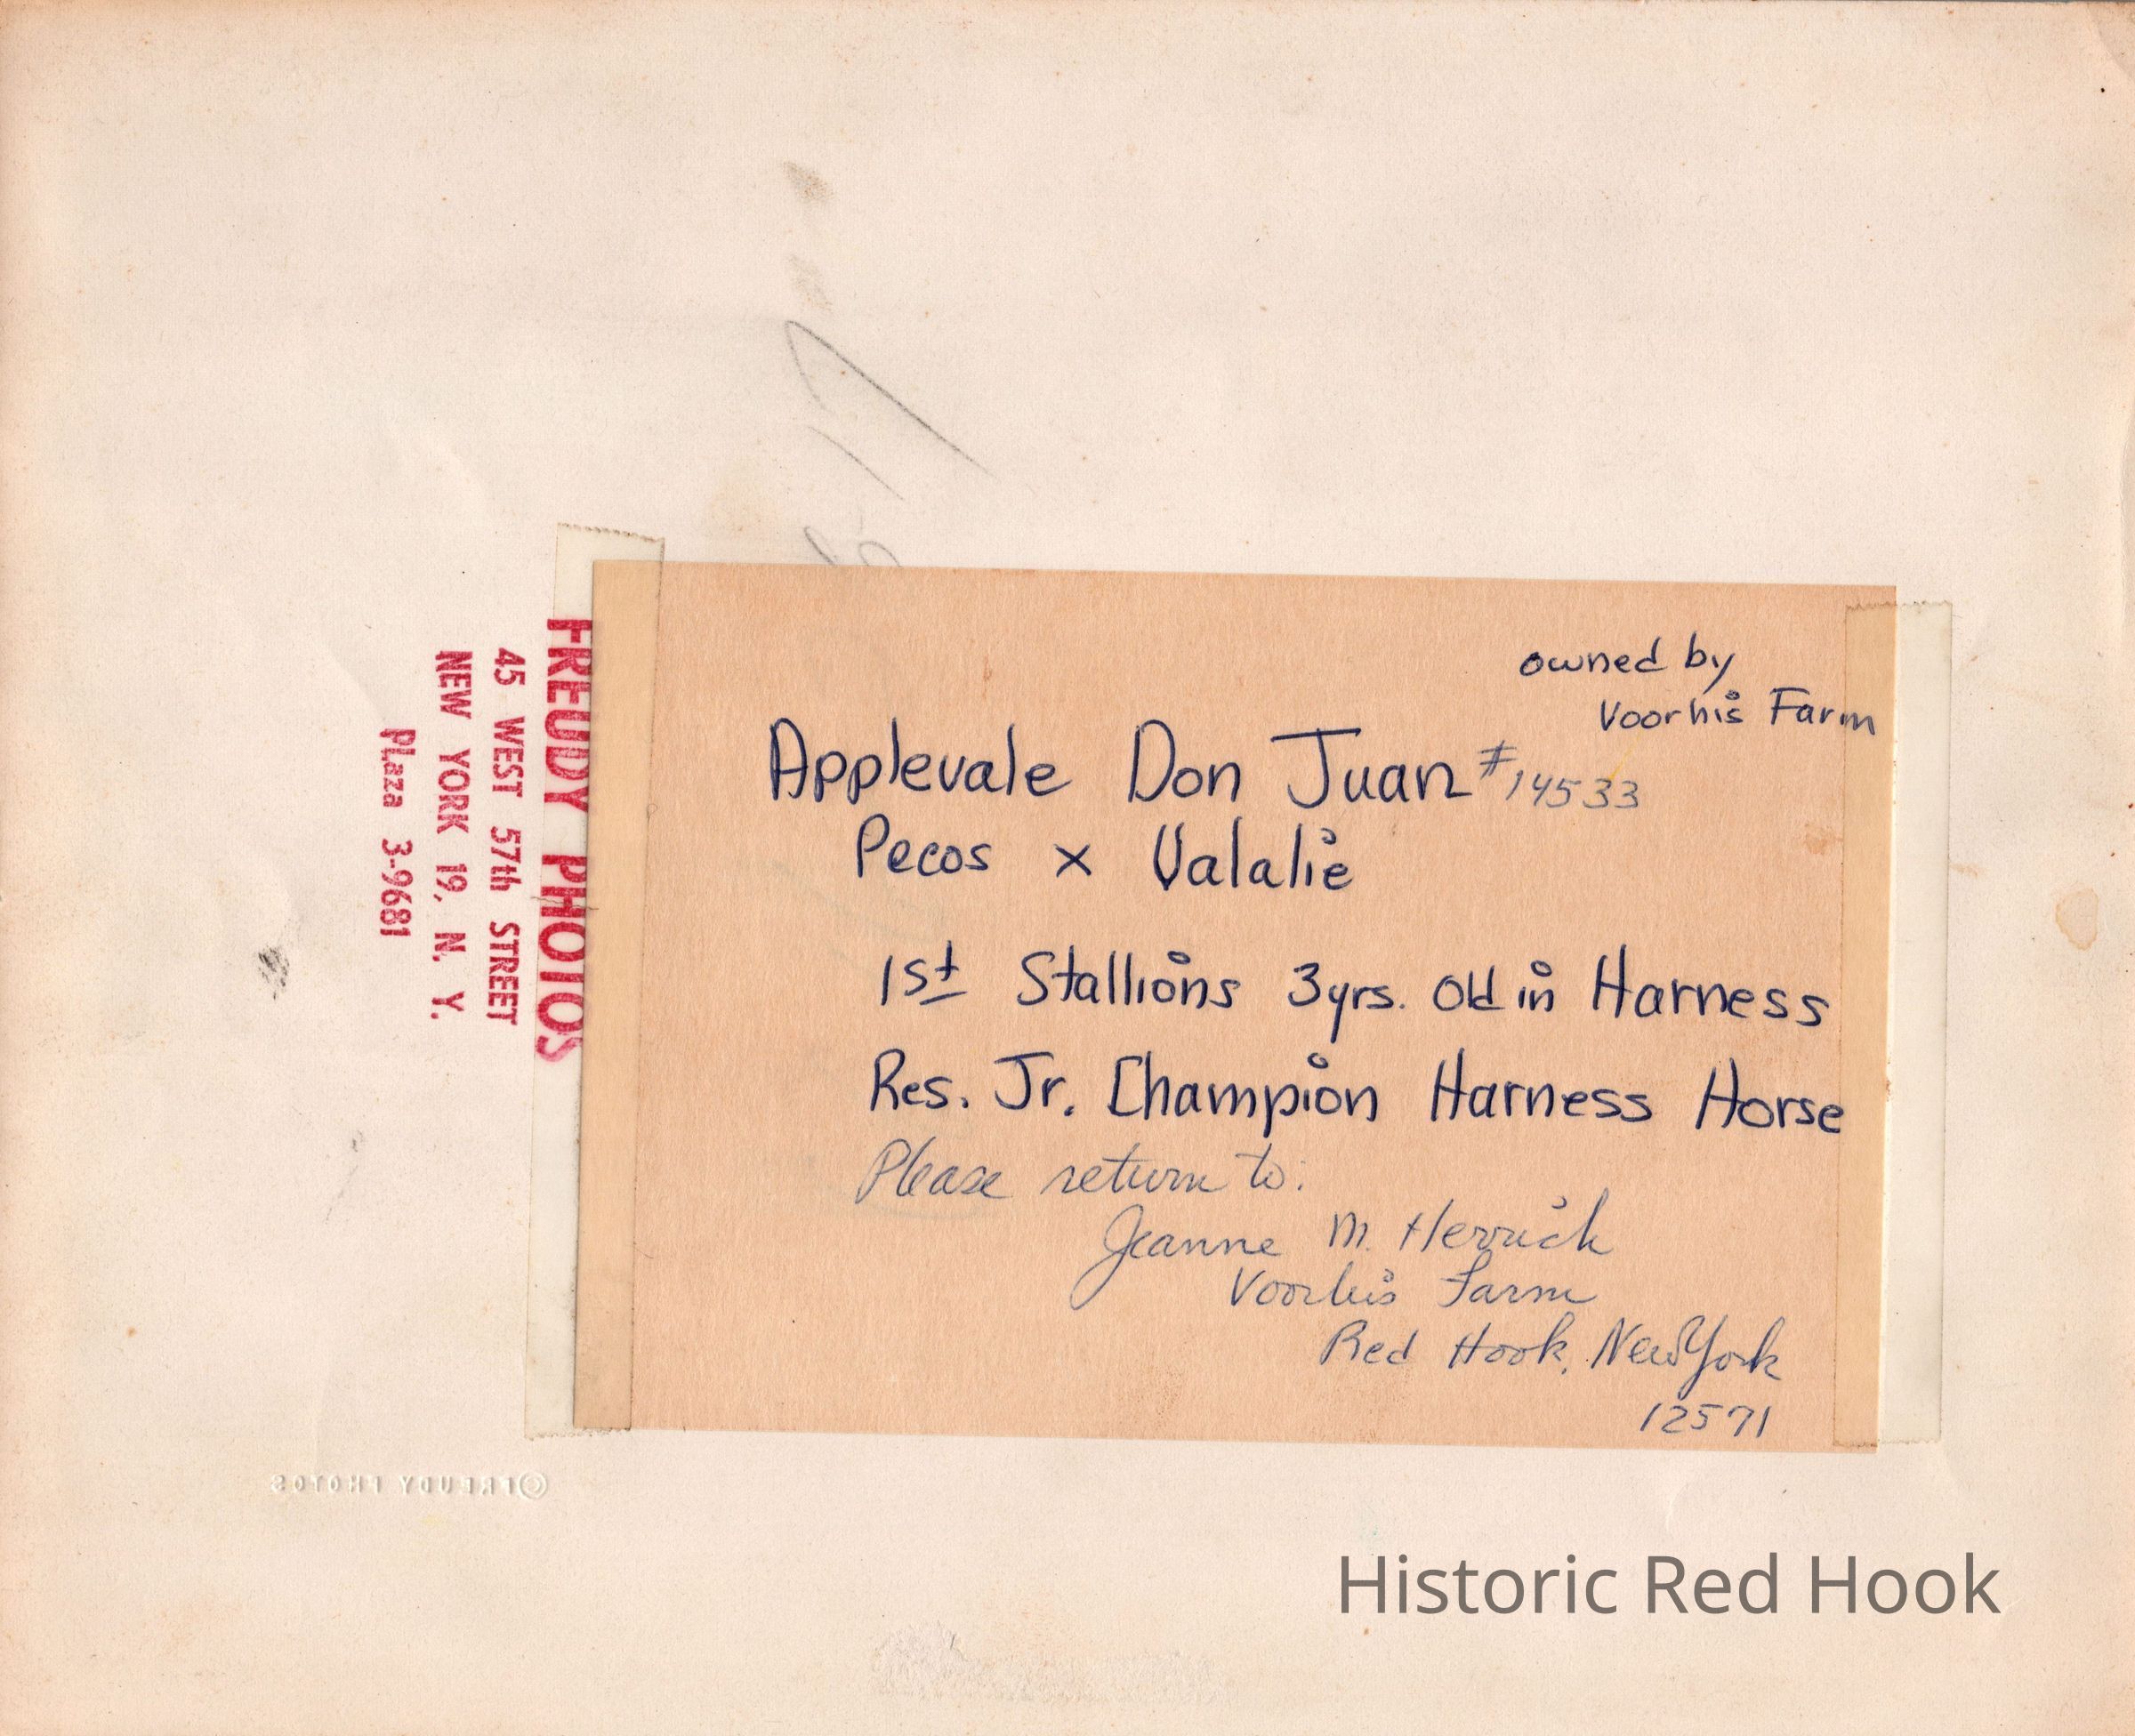 owned by
Voorhis Farm
Applevale Don Juan #14533
Pecos x Valalie
1st Stallions 3yrs. Old in Harness
Res. Jr. Champion Harness Horse
Please return to:
Jeanne M. Herrick
Voorhis Farm
Red Hook, New York
12571
FREUDY PHOTOS
45 WEST 57th STREET
NEW YORK 19, N. Y.
PLaza 3-9681
©FREUDY PHOTOS
Historic Red Hook